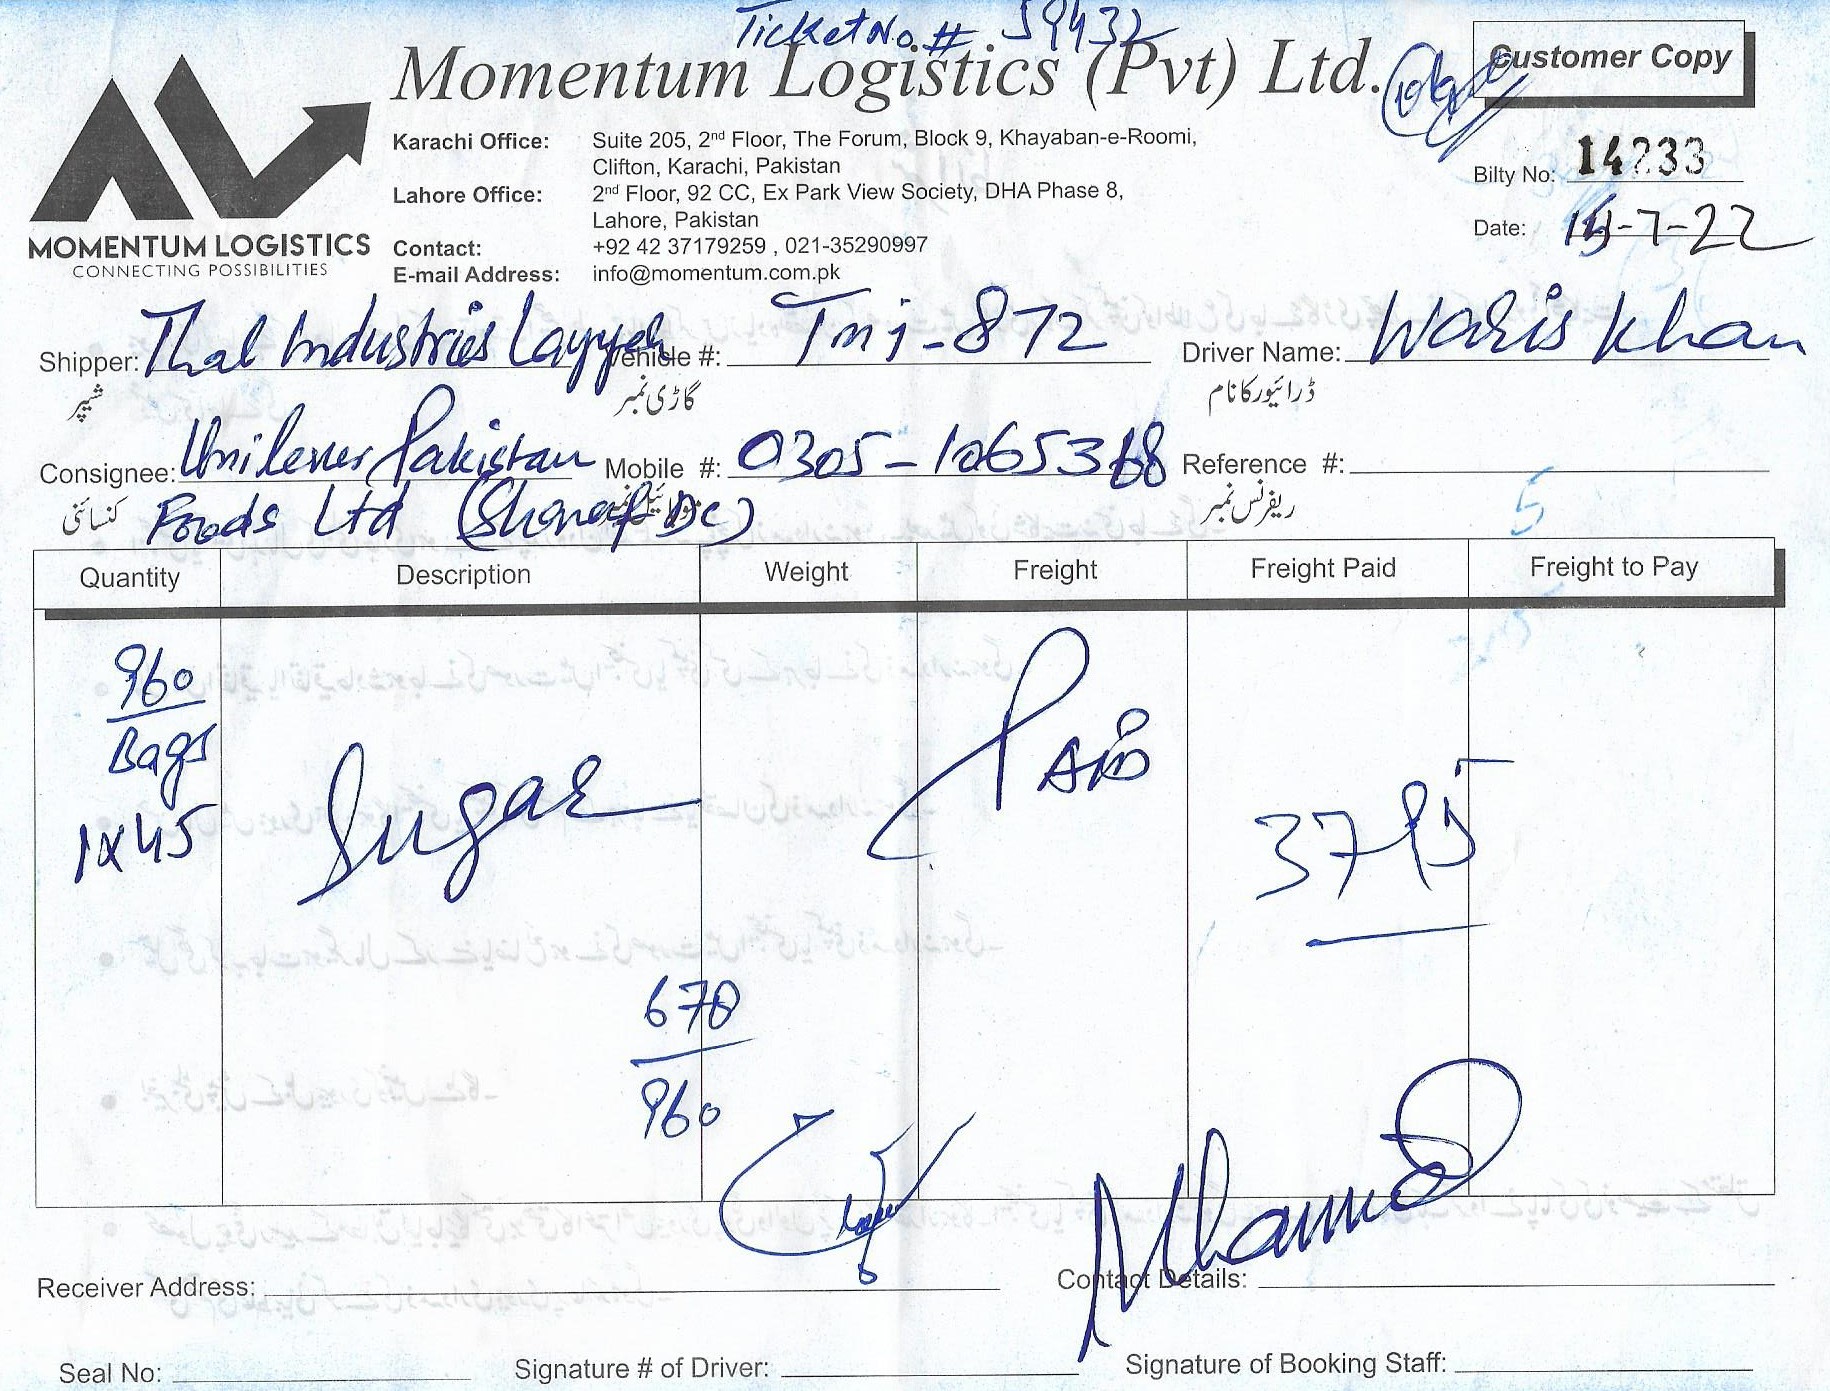 Ticket No. # 59432
Momentum Logistics (Pvt) Ltd.
Customer Copy
MOMENTUM LOGISTICS
CONNECTING POSSIBILITIES
Karachi Office: Suite 205, 2nd Floor, The Forum, Block 9, Khayaban-e-Roomi,
Clifton, Karachi, Pakistan
Lahore Office: 2nd Floor, 92 CC, Ex Park View Society, DHA Phase 8,
Lahore, Pakistan
Contact: +92 42 37179259 , 021-35290997
E-mail Address: info@momentum.com.pk
Bilty No: 14233
Date: -7-22
Shipper: Thal Industries Layyah Vehicle #: TMJ-872 Driver Name: Waris Khan
شیپر گاڑی نمبر ڈرائیور کا نام
Consignee: Unilever Pakistan Mobile #: 0305-1065368 Reference #:
کنسائنی Foods Ltd (Sharaf DC) موبائیل نمبر ریفرنس نمبر
5
Quantity Description Weight Freight Freight Paid Freight to Pay
960
Bags
1x45
Sugar
Paid
3795
670
960
Receiver Address: Contact Details:
Seal No: Signature # of Driver: Signature of Booking Staff: